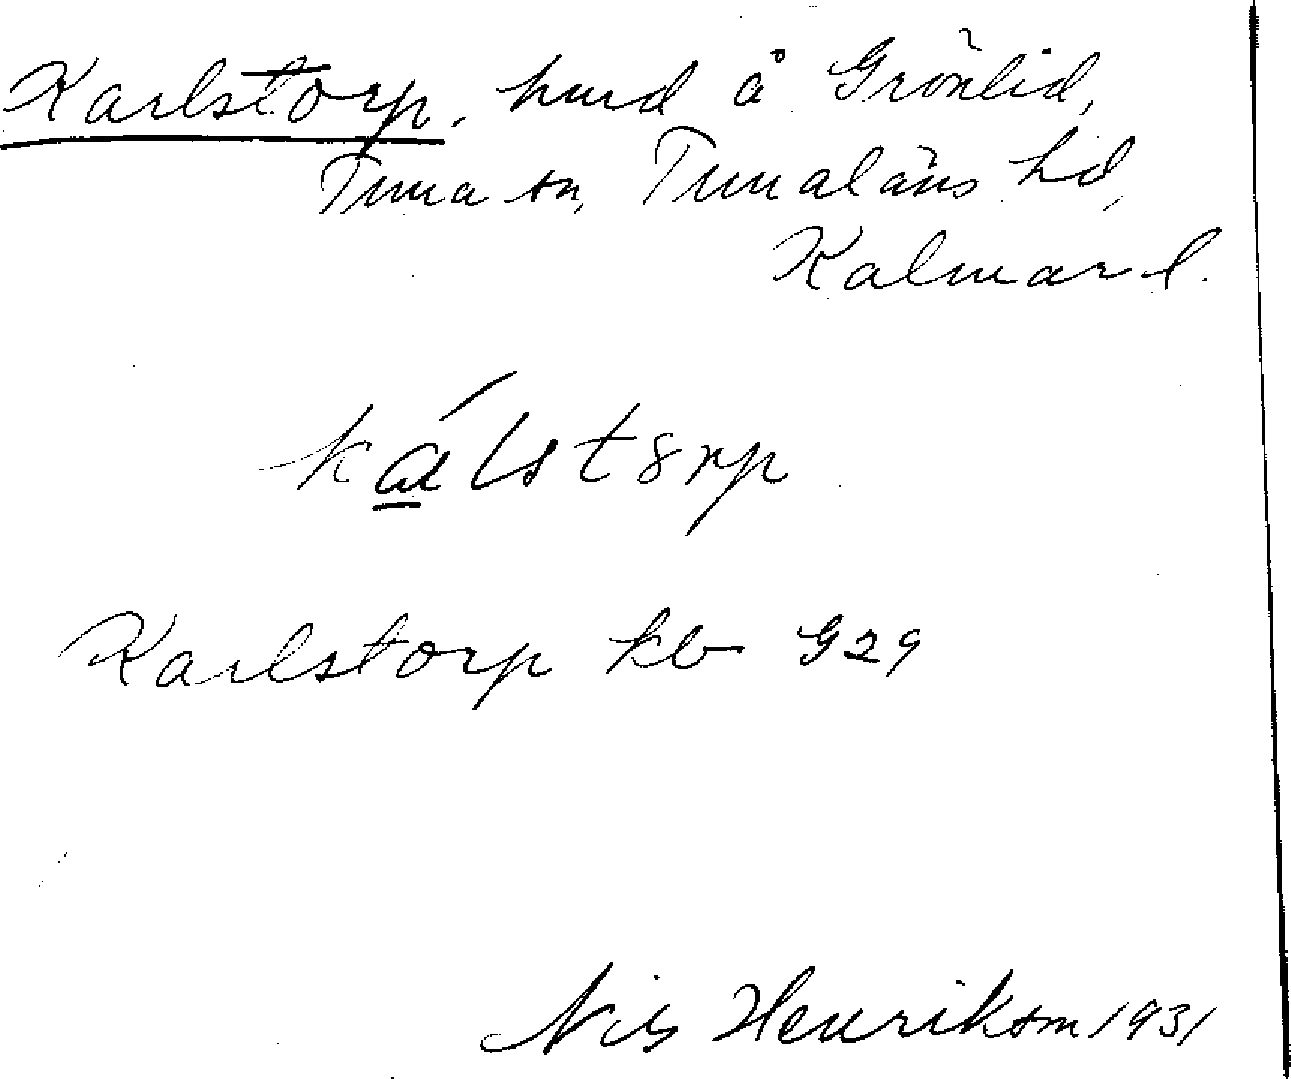 Karlstorp, hmd å Grönlid,
Tuna sn, Tunaläns hd,
Kalmar l.
kálstorp
Karlstorp kb G29
Nils Henrikson 1931